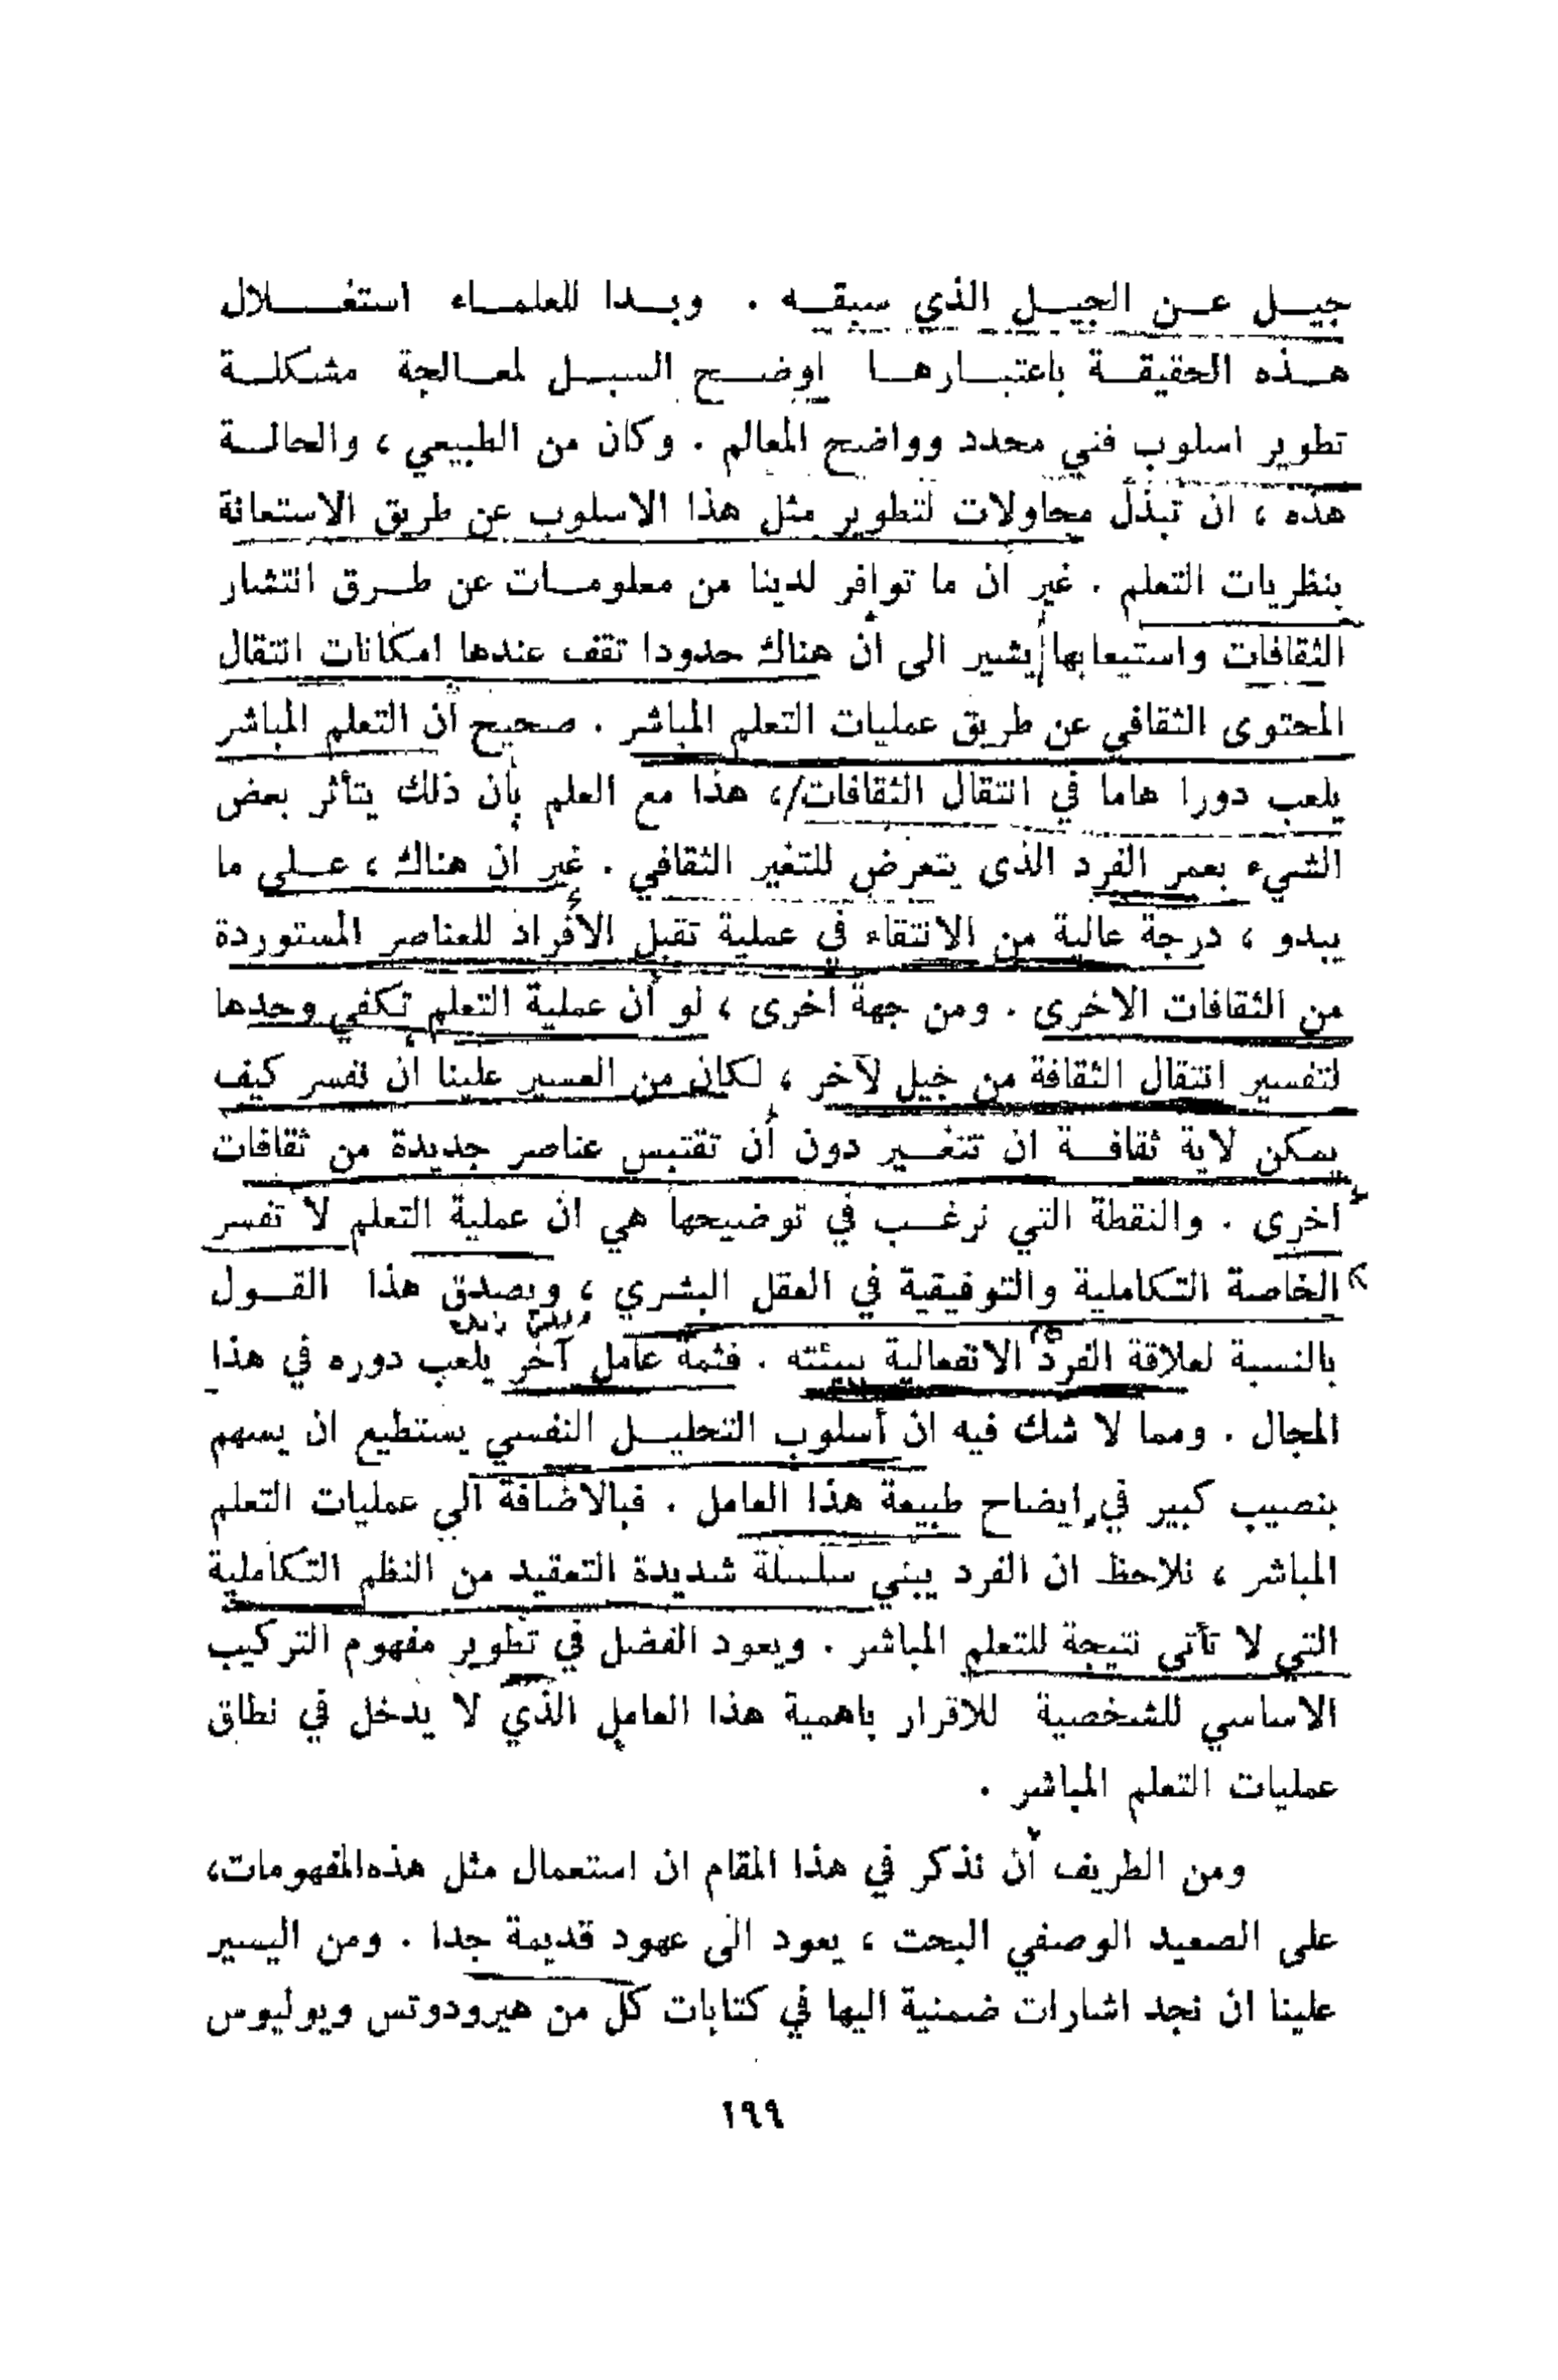 جيل عن الجيل الذي سبقه . وبدا للعلماء استغلال
هذه الحقيقة باعتبارها اوضح السبل لمعالجة مشكلة
تطوير اسلوب فني محدد وواضح المعالم . وكان من الطبيعي ، والحالة
هذه ، ان تبذل محاولات لتطوير مثل هذا الاسلوب عن طريق الاستعانة
بنظريات التعلم . غير ان ما توافر لدينا من معلومات عن طرق انتشار
الثقافات واستيعابها يشير الى أن هناك حدودا تقف عندها امكانات انتقال
المحتوى الثقافي عن طريق عمليات التعلم المباشر . صحيح أن التعلم المباشر
يلعب دورا هاما في انتقال الثقافات ، هذا مع العلم بأن ذلك يتأثر بعض
الشيء بعمر الفرد الذى يتعرض للتغير الثقافي . غير ان هناك ، على ما
يبدو ، درجة عالية من الانتقاء في عملية تقبل الأفراد للعناصر المستوردة
من الثقافات الاخرى . ومن جهة اخرى ، لو أن عملية التعلم تكفي وحدها
لتفسير انتقال الثقافة من جيل لآخر ، لكان من العسير علينا ان نفسر كيف
يمكن لاية ثقافة ان تتغير دون أن تقتبس عناصر جديدة من ثقافات
اخرى . والنقطة التي نرغب في توضيحها هي ان عملية التعلم لا تفسر
الخاصة التكاملية والتوفيقية في العقل البشري ، ويصدق هذا القول
بالنسبة لعلاقة الفرد الانفعالية ببيئته . فثمة عامل آخر يلعب دوره في هذا
المجال . ومما لا شك فيه ان أسلوب التحليل النفسي يستطيع ان يسهم
بنصيب كبير في ايضاح طبيعة هذا العامل . فبالاضافة الى عمليات التعلم
المباشر ، نلاحظ ان الفرد يبني سلسلة شديدة التعقيد من النظم التكاملية
التي لا تأتى نتيجة للتعلم المباشر . ويعود الفضل في تطوير مفهوم التركيب
الاساسي للشخصية للاقرار باهمية هذا العامل الذي لا يدخل في نطاق
عمليات التعلم المباشر .
ومن الطريف أن نذكر في هذا المقام ان استعمال مثل هذه المفهومات،
على الصعيد الوصفي البحت ، يعود الى عهود قديمة جدا . ومن اليسير
علينا ان نجد اشارات ضمنية اليها في كتابات كل من هيرودوتس ويوليوس
١٩٩